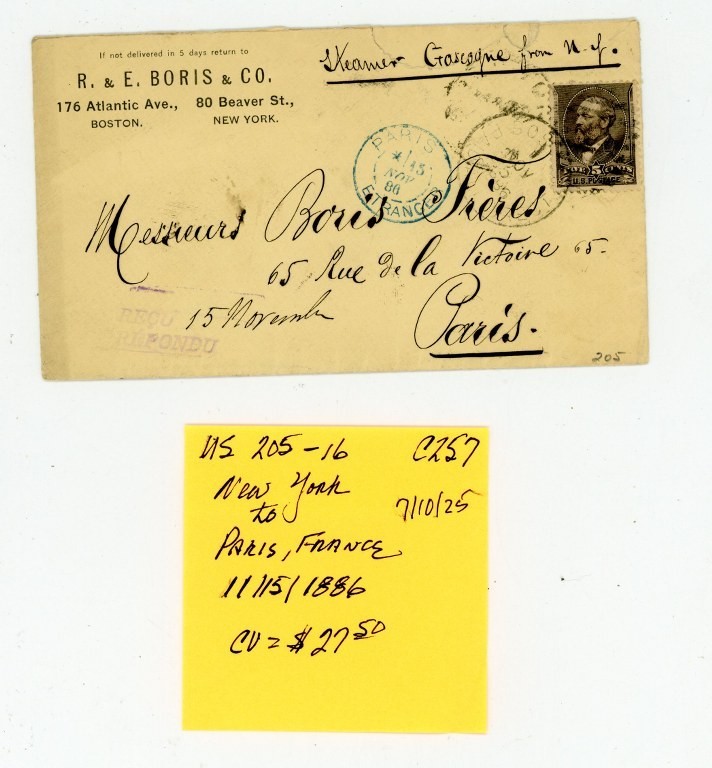 If not delivered in 5 days return to
R. & E. BORIS & CO.
176 Atlantic Ave., 80 Beaver St.,
BOSTON. NEW YORK.
Steamer Gascogne from N-Y.
PARIS
15
NOV
86
ETRANGER
U.S. POSTAGE
Messieurs Boris Frères
65 Rue de la Victoire 65-
15 Novembre
Paris.
REÇU
REPONDU
205
US 205-16 C257
New York
to 7/10/25
Paris, France
11/15/1886
CV = $27 50